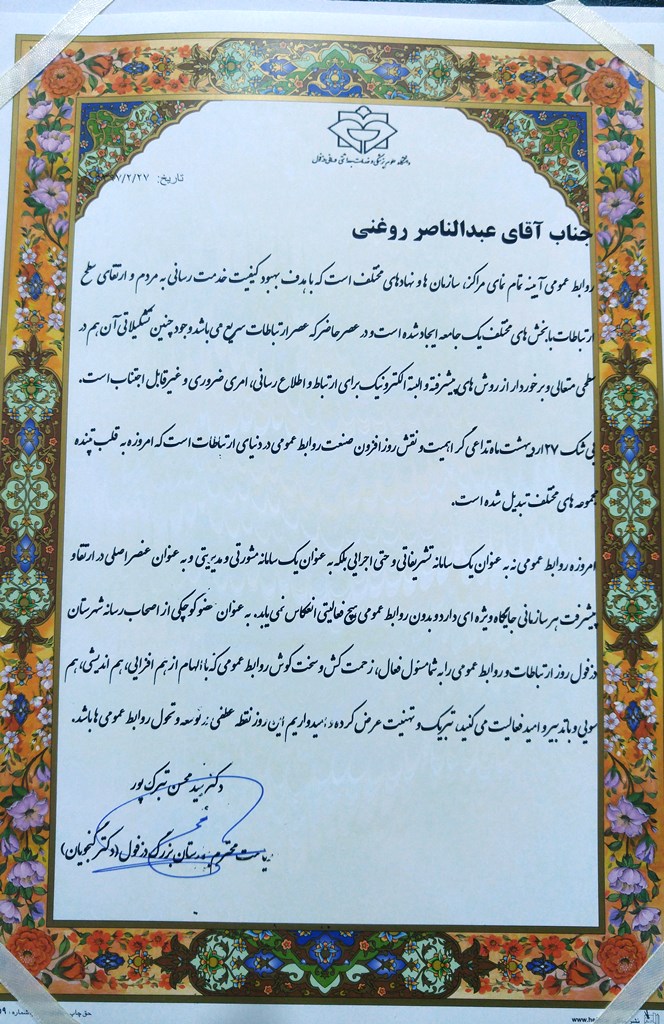 دانشگاه علوم پزشکی و خدمات بهداشتی درمانی دزفول
تاریخ: ۷/۲/۲۷
جناب آقای عبدالناصر روغنی
روابط عمومی آینه تمام نمای مراکز، سازمان ها و نهادهای مختلف است که با هدف بهبود کیفیت خدمت رسانی به مردم و ارتقای سطح
ارتباطات با بخش های مختلف یک جامعه ایجاد شده است و در عصر حاضر که عصر ارتباطات سریع می باشد وجود چنین تشکیلاتی آن هم در
سطحی متعالی و برخوردار از روش های پیشرفته و البته الکترونیک برای ارتباط و اطلاع رسانی، امری ضروری و غیر قابل اجتناب است.
بی شک ۲۷ اردیبهشت ماه تداعی گر اهمیت و نقش روز افزون صنعت روابط عمومی در دنیای ارتباطات است که امروزه به قلب تپنده
مجموعه های مختلف تبدیل شده است.
امروزه روابط عمومی نه به عنوان یک سامانه تشریفاتی و حتی اجرایی بلکه به عنوان یک سامانه مشورتی و مدیریتی و به عنوان عنصر اصلی در ارتقا و
پیشرفت هر سازمانی جایگاه ویژه ای دارد و بدون روابط عمومی هیچ فعالیتی انعکاس نمی یابد. به عنوان عضو کوچکی از اصحاب رسانه شهرستان
دزفول روز ارتباطات و روابط عمومی را به شما مسئول فعال، زحمت کش و سخت کوش روابط عمومی که با الهام از هم افزایی، هم اندیشی، هم
سویی و با تدبیر و امید فعالیت می کنید، تبریک و تهنیت عرض کرده و امیدواریم این روز نقطه عطفی بر توسعه و تحول روابط عمومی ها باشد.
دکتر سید محسن تبرک پور
ریاست محترم بیمارستان بزرگ دزفول (دکتر گنجویان)
حق چاپ
شماره:
www.he